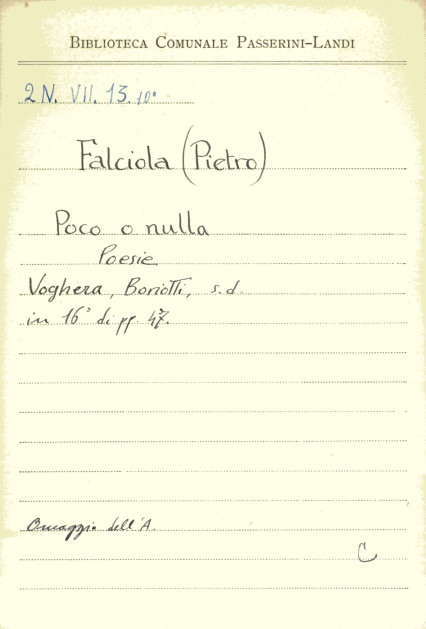 BIBLIOTECA COMUNALE PASSERINI-LANDI
2 N. VII. 13. 10°
Falciola (Pietro)
Poco o nulla
Poesie
Voghera, Boriotti, s. d.
in 16° di pp. 47.
Omaggio dell'A.
C